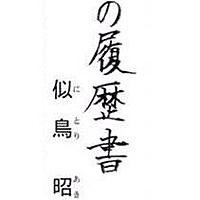 の履歴書
似鳥 昭
にとり あき